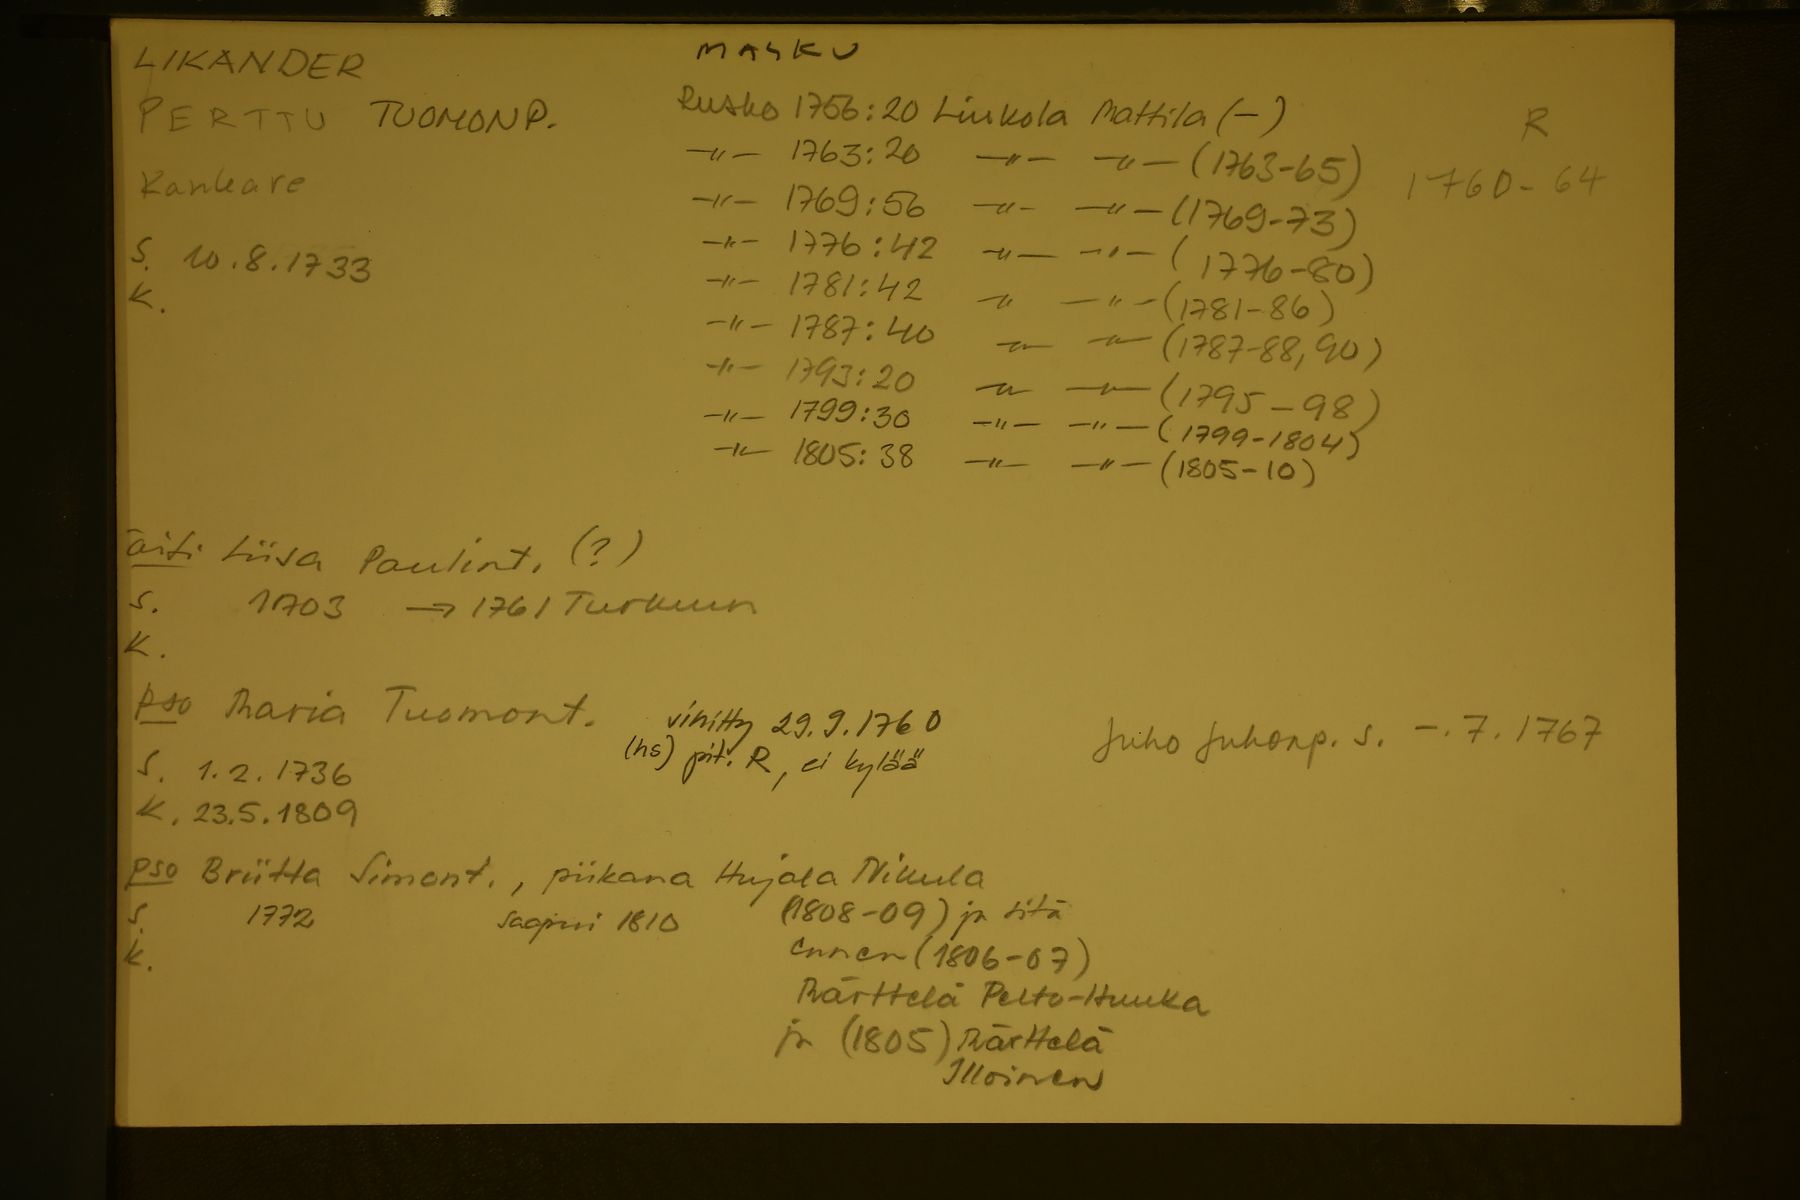 LIKANDER
MASKU
PERTTU TUOMONP.
Rusko 1756:20 Liukola Mattila (-)
R
Kankare
-"- 1763:20 -"- -"- (1763-65)
1760-64
-"- 1769:56 -"- -"- (1769-73)
S. 10.8.1733
-"- 1776:42 -"- -"- (1776-80)
K.
-"- 1781:42 -"- -"- (1781-86)
-"- 1787:40 -"- -"- (1787-88, 90)
-"- 1793:20 -"- -"- (1795-98)
-"- 1799:30 -"- -"- (1799-1804)
-"- 1805:38 -"- -"- (1805-10)
äiti Liisa Paulint. (?)
S. 1703 → 1761 Turkuun
K.
pso Maria Tuomont.
vihitty 29.9.1760
(hs) pit. R, ei kylää
Juho Juhonp. s. -.7.1767
S. 1.2.1736
K. 23.5.1809
pso Briitta Simont., piikana Hujala Nikula
S. 1772 saapui 1810 (1808-09) ja sitä
K.
ennen (1806-07)
Märttelä Pelto-Huuka
ja (1805) Märttelä
Illoinen